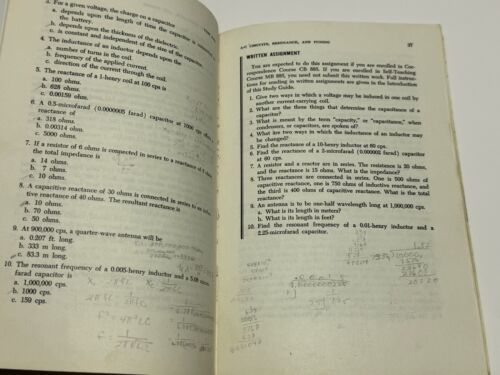 3. For a given voltage, the charge on a capacitor
a. depends upon the length of time the capacitor is
the battery.
b. depends upon the thickness of the dielectric.
c. is constant and independent of the size of the
4. The inductance of an inductor depends upon the
a. number of turns in the coil.
b. frequency of the applied current.
c. direction of the current through the coil.
5. The reactance of a 1-henry coil at 100 cps is
a. 100 ohms.
b. 628 ohms.
c. 0.00159 ohms.
6. A 0.5-microfarad (0.0000005 farad) capacitor at 2000
reactance of
a. 318 ohms.
b. 0.00314 ohm.
c. 5000 ohms.
7. If a resistor of 6 ohms is connected in series to a reactance of
the total impedance is
a. 14 ohms.
b. 7 ohms.
c. 10 ohms.
8. A capacitive reactance of 30 ohms is connected in series to an
reactance of 40 ohms. The resultant reactance is
a. 10 ohms.
b. 70 ohms.
c. 50 ohms.
9. At 900,000 cps, a quarter-wave antenna will be
a. 0.207 ft. long.
b. 333 m long.
c. 83.3 m long.
10. The resonant frequency of a 0.005-henry inductor and a
farad capacitor is
a. 1,000,000 cps.
b. 1000 cps.
c. 159 cps.
A-C CIRCUITS, RESONANCE, AND TUNING 37
WRITTEN ASSIGNMENT
You are expected to do this assignment if you are enrolled in Cor-
respondence Course CB 885. If you are enrolled in Self-Teaching
Course MB 885, you need not submit this written work. Full instruc-
tions for sending in written assignments are given in the Introduction
of this Study Guide.
1. Give two ways in which a voltage may be induced in one coil by
another current-carrying coil.
2. What are the three things that determine the capacitance of a
capacitor?
3. What is meant by the term "capacity," or "capacitance," when
condensers, or capacitors, are spoken of?
4. What are two ways in which the inductance of an inductor may
be changed?
5. Find the reactance of a 10-henry inductor at 60 cps.
6. Find the reactance of a 5-microfarad (0.000005 farad) capacitor
at 60 cps.
7. A resistor and a reactor are in series. The resistance is 20 ohms,
and the reactance is 15 ohms. What is the impedance?
8. Three reactances are connected in series. One is 500 ohms of
capacitive reactance, one is 750 ohms of inductive reactance, and
the third is 400 ohms of capacitive reactance. What is the total
reactance?
9. An antenna is to be one-half wavelength long at 1,000,000 cps.
a. What is its length in meters?
b. What is its length in feet?
10. Find the resonant frequency of a 0.01-henry inductor and a
2.25-microfarad capacitor.